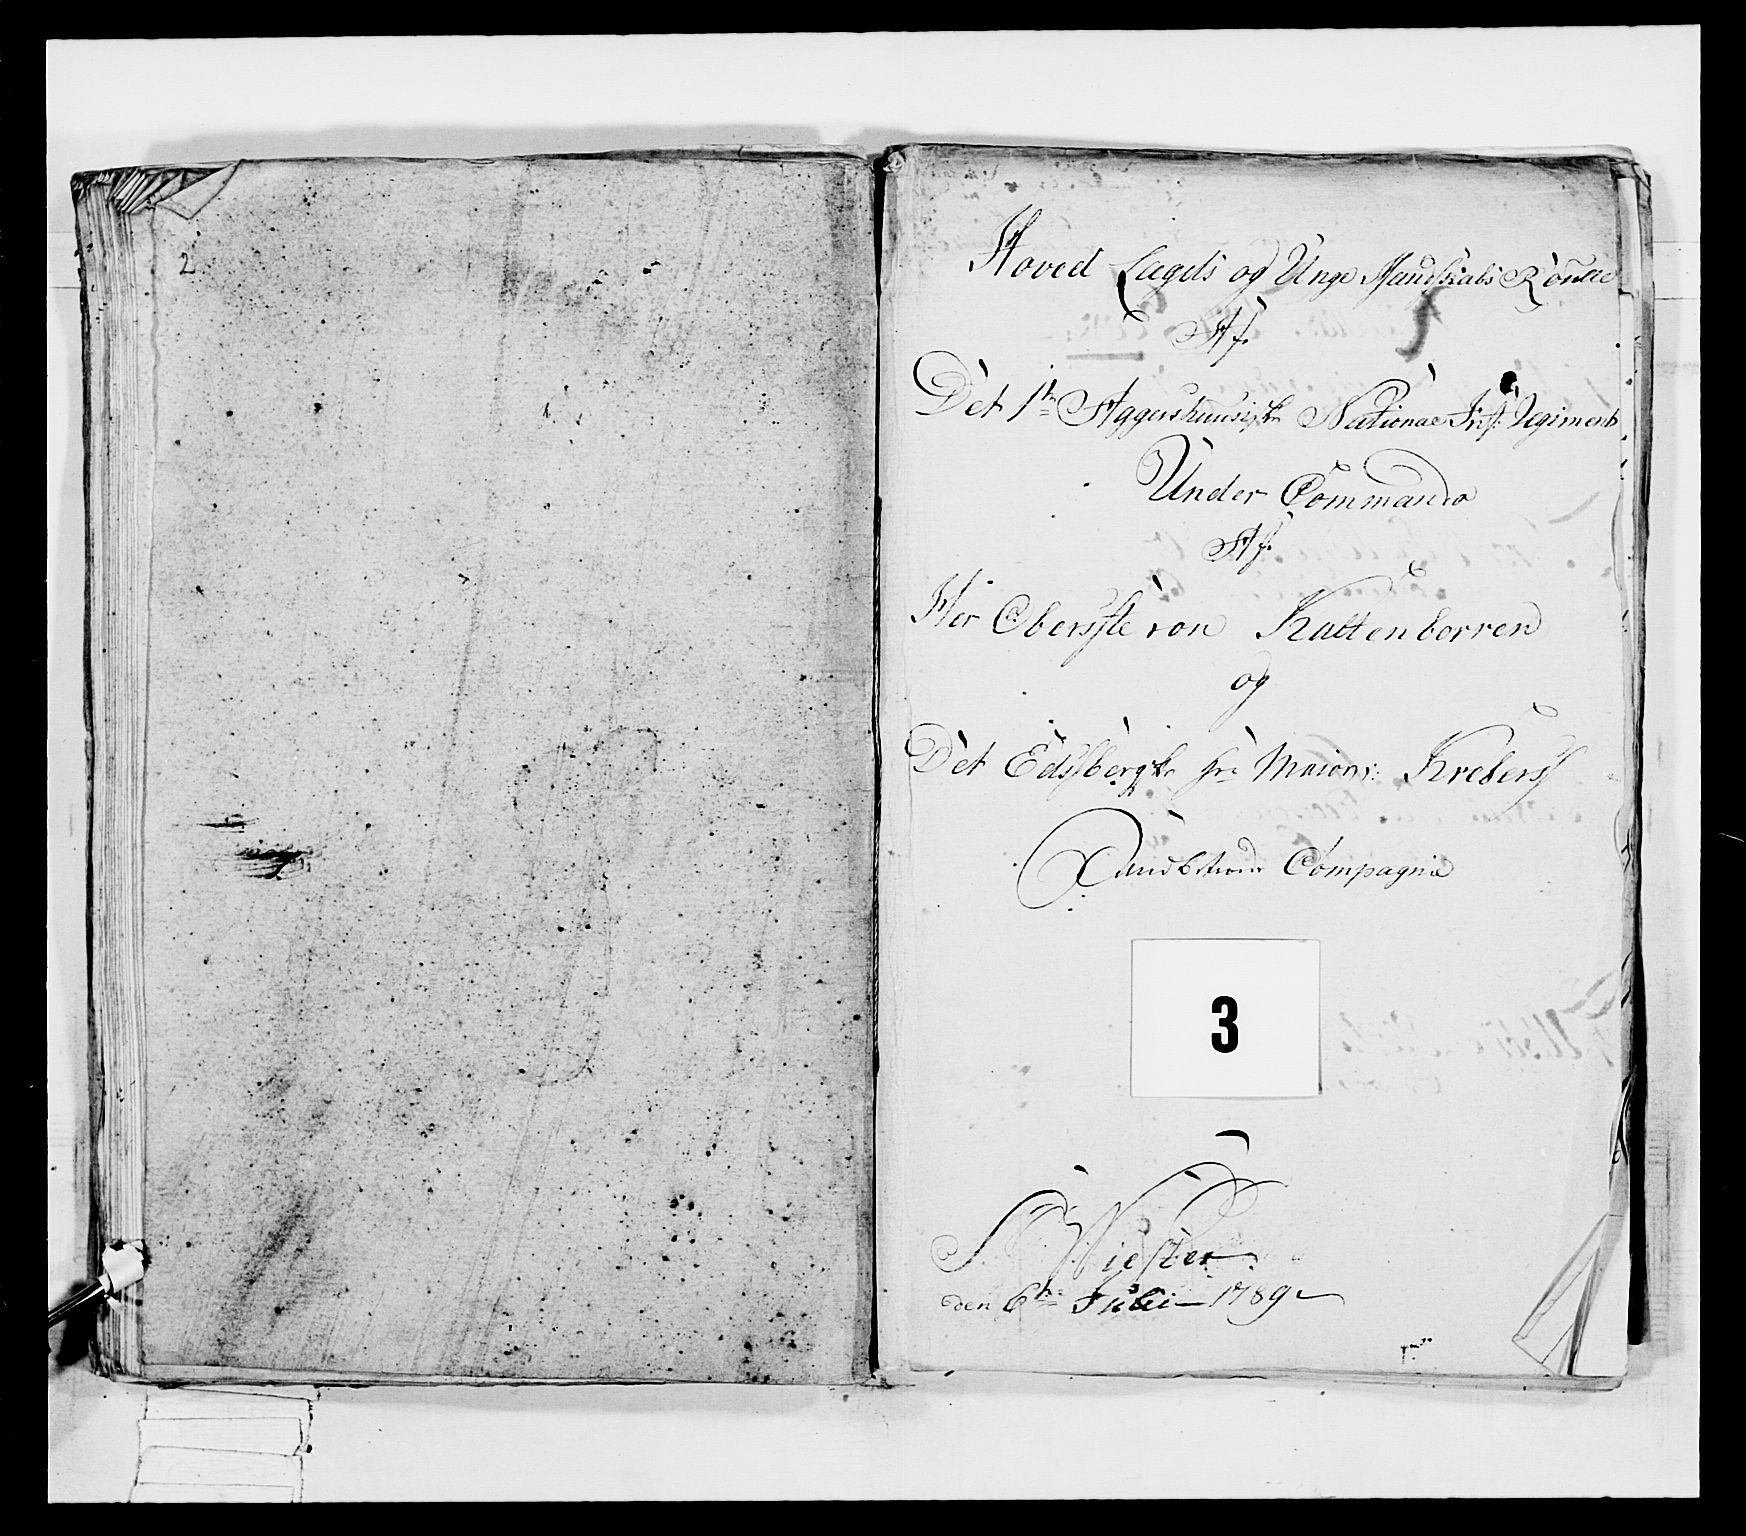 2
Hoved Lægds og Unge Mandskabs Roulle
Af
Det 1te Aggershuusiske National Inf: Regiment
Under Commando
Af
Her Oberste von Kaltenborren
og
Det Edsbergske fra Maior: Krebers
Compagnie
3
S. Wiester
den 6te Juli 1789